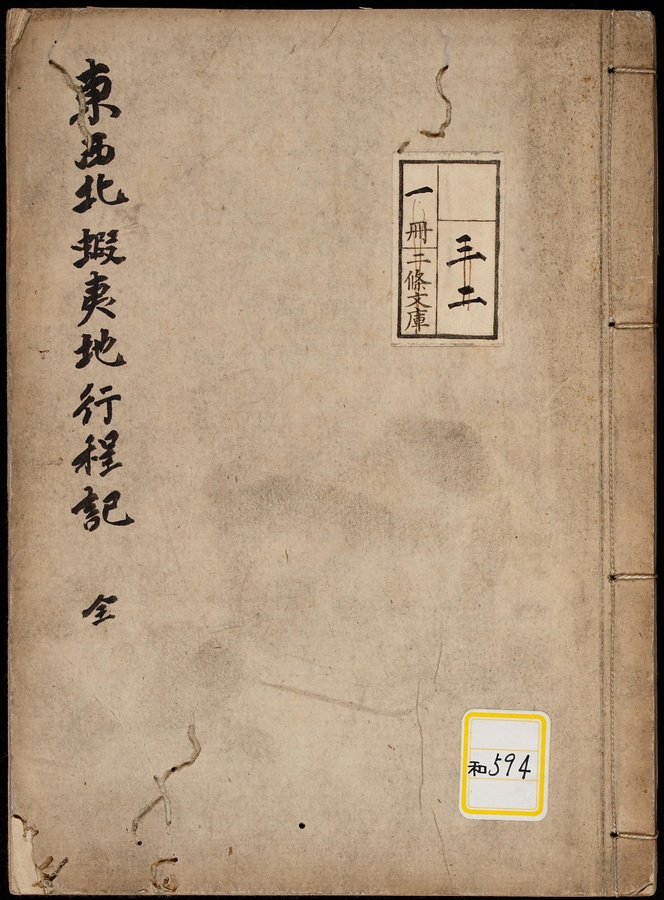 東西北蝦夷地行程記 全
三二
一冊
二條文庫
和594